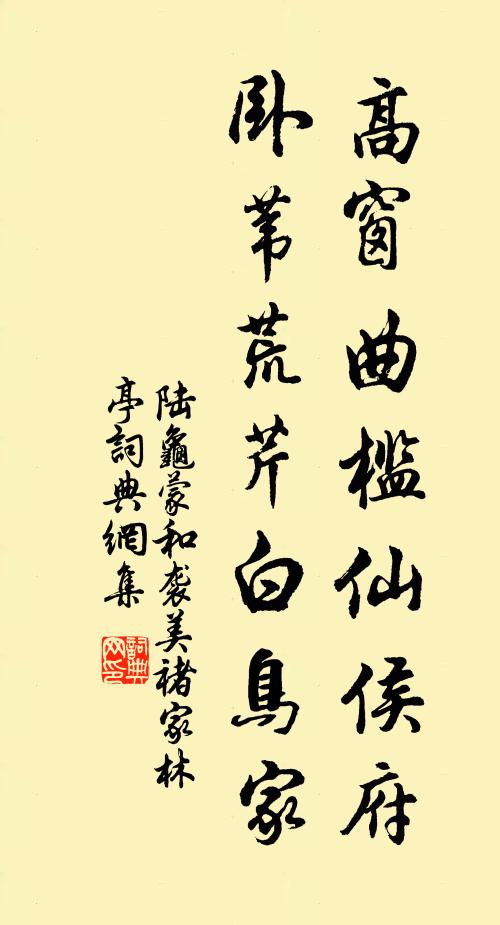 高窗曲檻仙侯府
卧苇荒芹白鳥家
陆龜蒙和袭美褚家林
亭詞典網集
詞典
网印